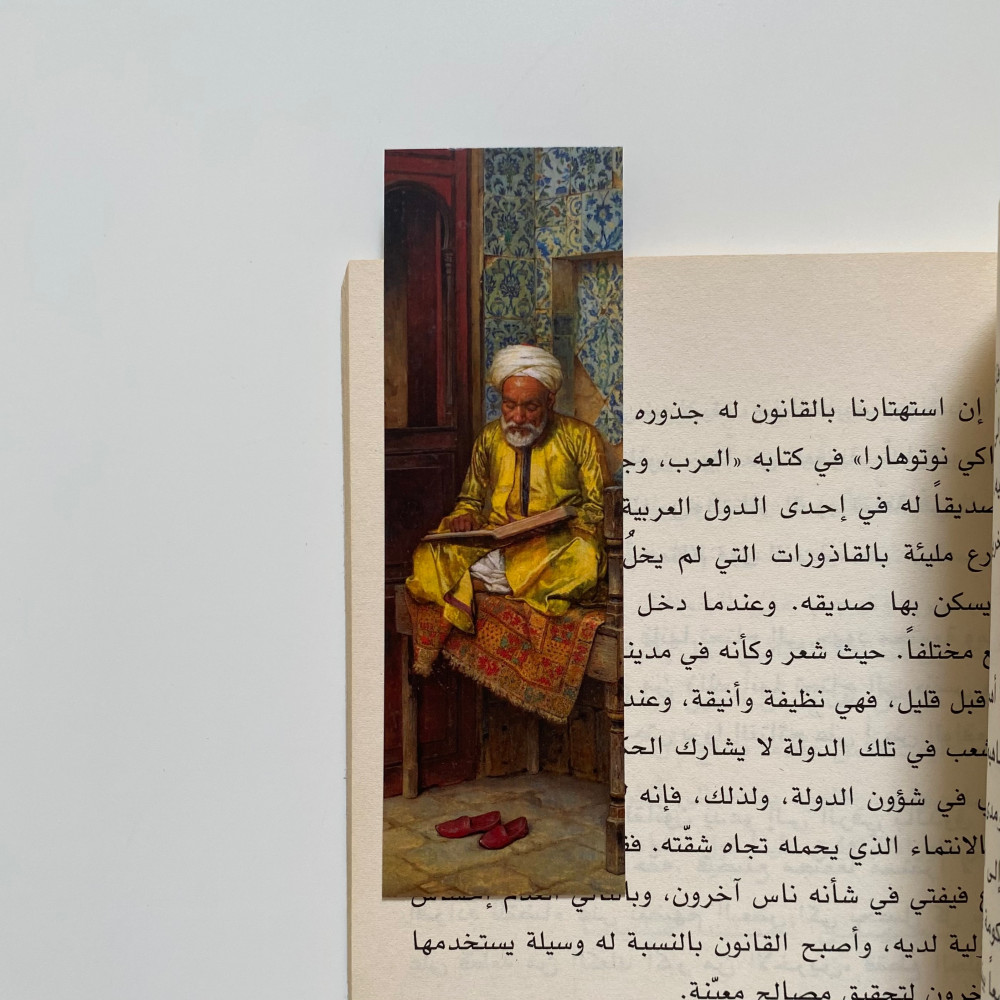 إن استهتارنا بالقانون له جذوره
نوتوهارا» في كتابه «العرب،
له في إحدى الـدول العربية
مليئة بالقاذورات التي لم
يسكن بها صديقه. وعندما دخل
مختلفاً. حيث شعر وكأنه في
قبل قليل، فهي نظيفة وأنيقة،
في تلك الدولة لا يشارك
في شؤون الدولة، ولذلك، فإنه
الانتماء الذي يحمله تجاه شقّته.
فيفتي في شأنه ناس آخرون، وبالتالي انعدم إحساس
لديه، وأصبح القانون بالنسبة له وسيلة يستخدمها
لتحقيق مصالح معيّنة.